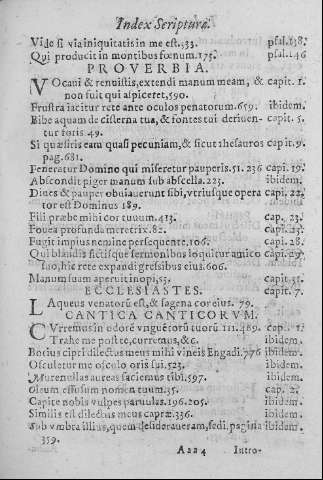 Index Scripturæ.
Vide si via iniquitatis in me est. 33. psal. 138.
Qui producit in montibus fœnum. 175. psal. 146
PROVERBIA.
VOcaui & renuistis, extendi manum meam, & capit. 1.
non fuit qui aspiceret, 590.
Frustra iacitur rete ante oculos penatorum. 659. ibidem.
Bibe aquam de cisterna tua, & fontes tui deriuen- capit. 5.
tur foris 49.
Si quæsieris eam quasi pecuniam, & sicut thesauros capit. 9.
pag. 681.
Feneratur Domino qui miseretur pauperis. 51. 236 capi. 19.
Abscondit piger manum sub abscella. 223. ibidem.
Diues & pauper obuiauerunt sibi, vtriusque opera capi. 22.
tor est Dominus 189.
Fili præbe mihi cor tuuum. 413. cap. 23.
Fouea profunda meretrix. 82. cap. 23.
Fugit impius nemine persequente. 106. capi. 28.
Qui blandis fictisque sermonibus loquitur amico capi. 29.
suo, hic rete expandi gressibus eius. 606.
Manum suam aperuit inopi, 53. capit. 31.
ECCLESIASTES. capit. 7.
LAqueus venatorũ est, & sagena cor eius. 79.
CANTICA CANTICORVM.
CVrremus in odorẽ vnguẽtorũ tuorũ 111. 489. cap. 1.
Trahe me post te, curremus, & c. ibidem.
Botrus cipri dilectus meus mihi vineis Engadi. 776 ibidem.
Osculetur me osculo oris sui. 523. ibidem.
Murenullas aureas faciemus tibi. 597. ibidem.
Oleum effusum nomen tuum. 35. cap. 2.
Capite nobis vulpes paruulas. 196. 205. ibidem.
Similis est dilectus meus capræ. 336. ibidem.
Sub vmbra illius, quem desideraueram, sedi. pagina ibidem.
359. Aaa 4 Intro-